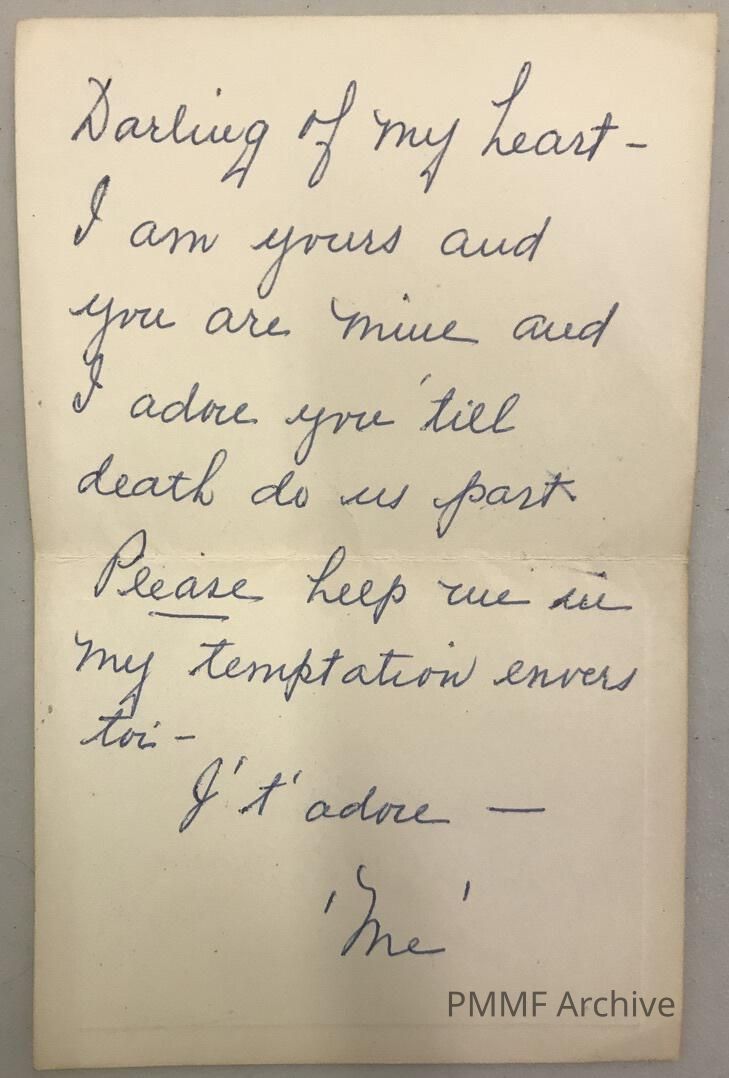 Darling of my heart –
I am yours and
you are mine and
I adore you 'till
death do us part
Please help me in
my temptation envers
toi –
J' t' adore —
'Me'
PMMF Archive